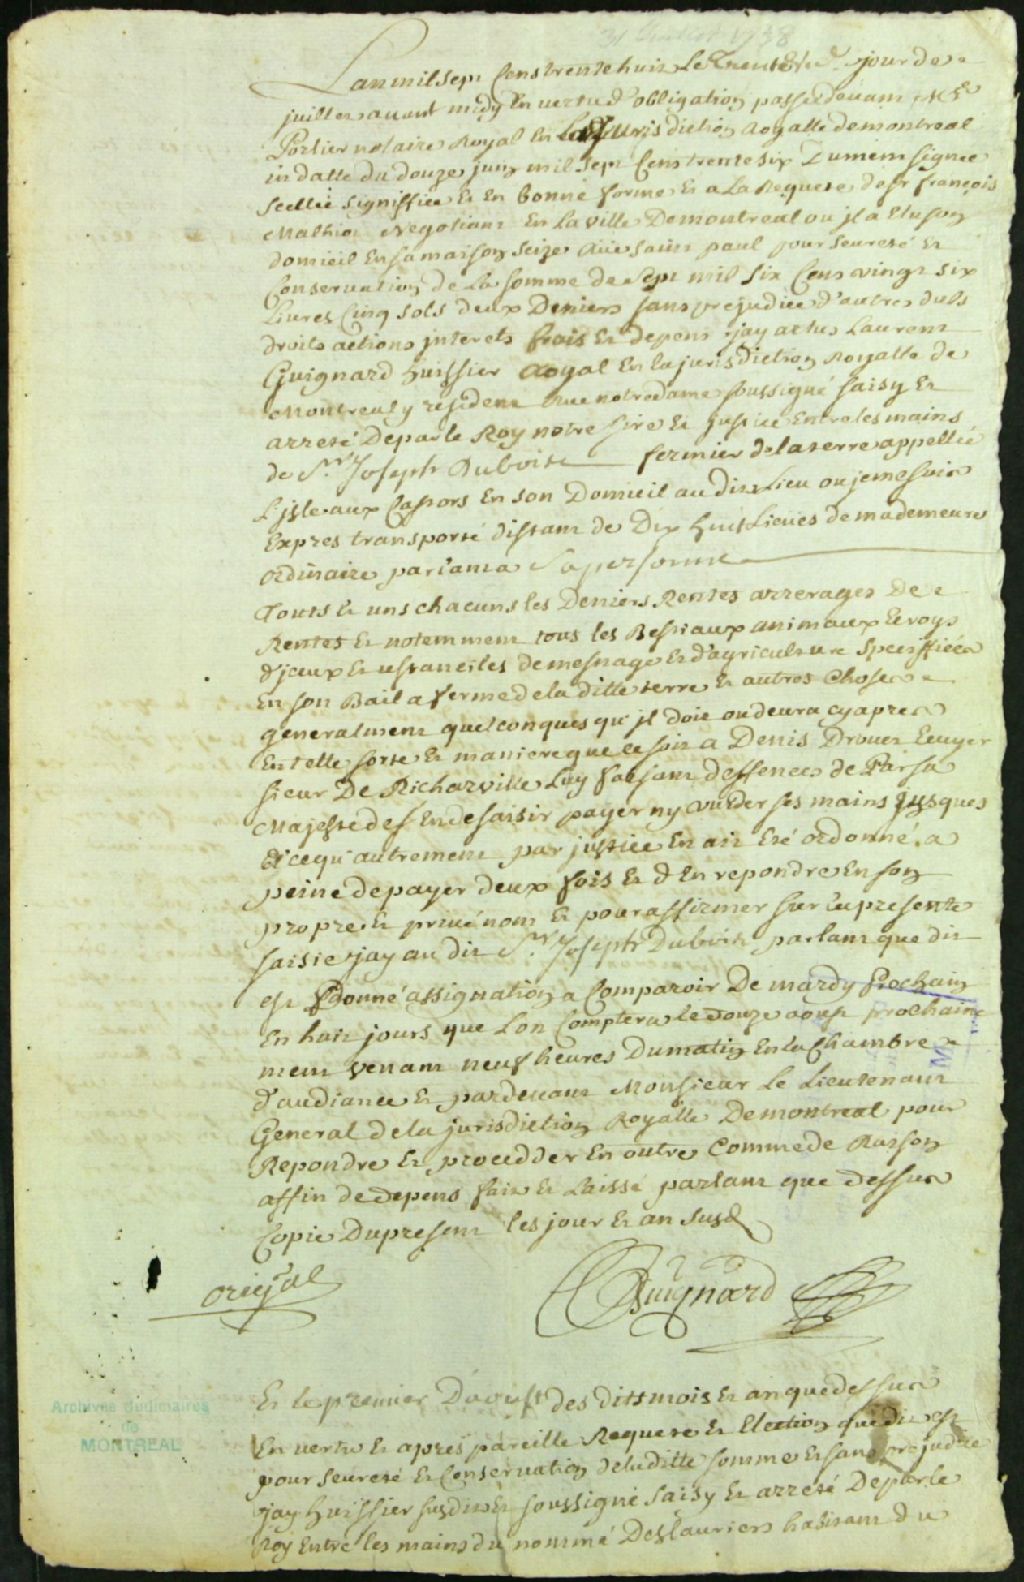 31 Juillet 1738
Lan mil sept Cens trente huit Le Trente Un.e jour de
juillet avant midy En vertu d'obligation passé devant Me
Porlier notaire Royal En La Jurisdiction Royalle de montreal
en datte du douze juin mil sept Cens trente six Dument signée
scellié signiffiée Et En bonne forme Et a La Requete de sr françois
Malhiot Negotiant En La ville De montreal ou jl a Elu son
domicil En sa maison seize Rüe saint paul pour seureté Et
Conservation de La somme de sept mil six Cens vingt six
Livres Cinq sols deux Deniers sans prejudice d'autres duls
droits actions jnterets frais Et depens jay artus Laurent
Guignard huissier Royal En la jurisdiction Royalle de
Montreal y resident Rue notre dame soussigné saisy Et
arresté De par le Roy notre sire Et justice Entre les mains
de Sr. Joseph Dubois fermier de la terre appellée
L'jsle aux Castors En son Domicil au dit Lieu ou je me suis
Expres transporté distant de Dix huit Lieües de ma demeure
ordinaire parlant a Sa personne
Touts Et uns chacuns les Deniers Rentes arrerages De
Rentes Et notemment tous les Bestiaux animaux Ecroys
d'jceux Et ustanciles de mesnage Et d'agriculture Speciffiées
En son Bail a ferme de la ditte terre Et autres Choses
generalment quelconques qu'jl doit ou devra cy apres
En telle sorte Et maniere que ce soit a Denis Drouet Ecuyer
sieur De Richarville Luy faisant deffences de Par sa
Majesté de s'En desaisir payer ny vuider ses mains jusques
a ce qu'autrement par justice En ait Eté ordonné a
peine de payer deux fois Et d'En repondre En son
propre Et privé nom Et pour affirmer sur la presente
saisie jay au dit Sr. Joseph Dubois parlant que dit
est donné assignation a Comparoir De mardy prochain
En huit jours que Lon Comptera le douze aoust Prochaine
ment venant neuf heures Du matin En la Chambre
d'audiance Et pardevant Monsieur Le Lieutenant
General de la jurisdiction Royalle De montreal pour
Repondre Et procedder En outre Comme de Raison
affin de depens fait Et Laissé parlant que dessus
Copie Du present les jour Et an susd
orig̃al
Guignard
Et le premier D'aoust des dits mois Et an que dessus
En vertu Et apres pareille Requete Et Election que dit est
pour seureté Et Conservation de la ditte somme Et sans prejudice
jay huissier susdit Et soussigné saisy Et arresté De par le
Roy Entre les mains du nommé Deslauriers habitant du
Archives Judiciaires
de
MONTREAL